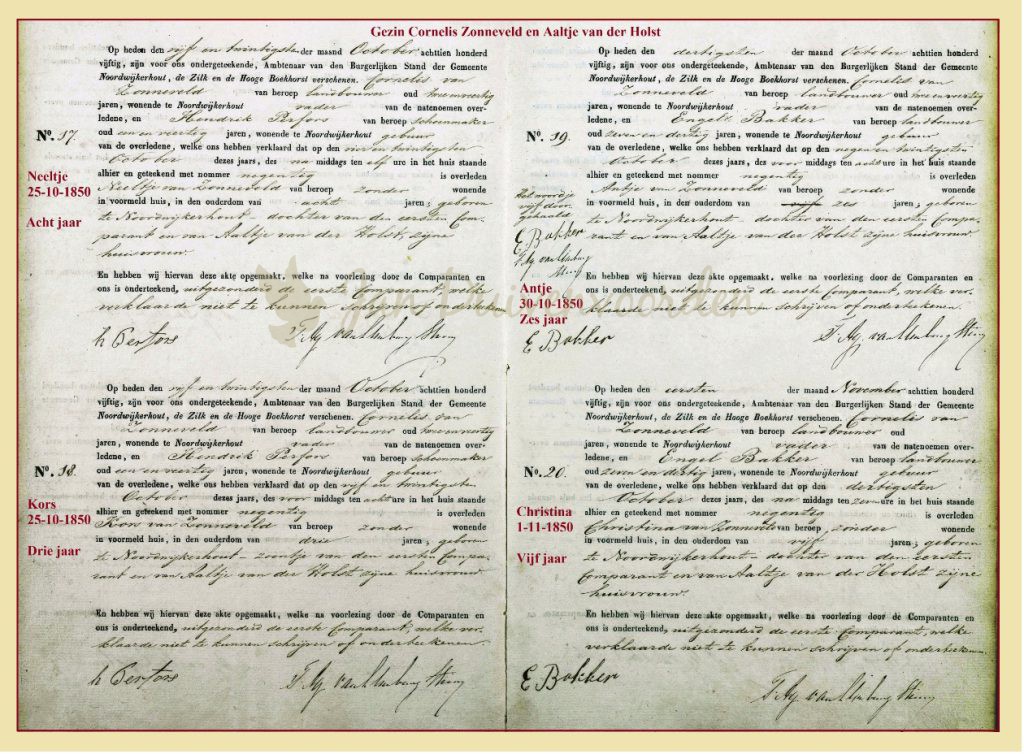 Gezin Cornelis Zonneveld en Aaltje van der Holst
Op heden den vijf en twintigsten der maand October achttien honderd
vijftig, zijn voor ons ondergeteekende, Ambtenaar van den Burgerlijken Stand der Gemeente
Noordwijkerhout, de Zilk en de Hooge Boekhorst verschenen. Cornelis van
Zonneveld van beroep landbouwer oud tweeenveertig
jaren, wonende te Noordwijkerhout vader van de natenoemen over-
ledene, en Hendrik Perfors van beroep schoenmaker
No. 17. oud een en veertig jaren, wonende te Noordwijkerhout gebuur
van de overledene, welke ons hebben verklaard dat op den vier en twintigsten
October dezes jaars, des na middags ten elf ure in het huis staande
alhier en geteekend met nommer negentig is overleden
Neeltje van Zonneveld van beroep zonder wonende
in voormeld huis, in den ouderdom van acht jaren; geboren
te Noordwijkerhout – dochter van den eersten Com-
parant en van Aaltje van der Holst, zijne
huisvrouw.
Neeltje
25-10-1850
Acht jaar
En hebben wij hiervan deze akte opgemaakt, welke na voorlezing door de Comparanten en
ons is onderteekend, uitgezonderd de eerste Comparant, welke
verklaarde niet te kunnen schrijven of onderteekenen
h Perfors
Op heden den vijf en twintigsten der maand October achttien honderd
vijftig, zijn voor ons ondergeteekende, Ambtenaar van den Burgerlijken Stand der Gemeente
Noordwijkerhout, de Zilk en de Hooge Boekhorst verschenen. Cornelis van
Zonneveld van beroep landbouwer oud tweeenveertig
jaren, wonende te Noordwijkerhout vader van de natenoemen over-
ledene, en Hendrik Perfors van beroep schoenmaker
No. 18. oud een en veertig jaren, wonende te Noordwijkerhout gebuur
van de overledene, welke ons hebben verklaard dat op den vijf en twintigsten
October dezes jaars, des voor middags ten acht ure in het huis staande
alhier en geteekend met nommer negentig is overleden
Kors van Zonneveld van beroep zonder wonende
in voormeld huis, in den ouderdom van drie jaren; geboren
te Noordwijkerhout – zoontje van den eersten Compa-
rant en van Aaltje van der Holst zijne huisvrouw.
Kors
25-10-1850
Drie jaar
En hebben wij hiervan deze akte opgemaakt, welke na voorlezing door de Comparanten en
ons is onderteekend, uitgezonderd de eerste Comparant, welke ver-
klaarde niet te kunnen schrijven of onderteekenen.
h Perfors
Op heden den dertigsten der maand October achttien honderd
vijftig, zijn voor ons ondergeteekende, Ambtenaar van den Burgerlijken Stand der Gemeente
Noordwijkerhout, de Zilk en de Hooge Boekhorst verschenen. Cornelis van
Zonneveld van beroep landbouwer oud tweeenveertig
jaren, wonende te Noordwijkerhout vader van de natenoemen over-
ledene, en Engel Bakker van beroep landbouwer
No. 19. oud zeven en dertig jaren, wonende te Noordwijkerhout gebuur
van de overledene, welke ons hebben verklaard dat op den negen en twintigsten
October dezes jaars, des voor middags ten acht ure in het huis staande
alhier en geteekend met nommer negentig is overleden
Antje van Zonneveld van beroep zonder wonende
in voormeld huis, in den ouderdom van vijf zes jaren; geboren
te Noordwijkerhout – dochter van den eersten Compa-
rant en van Aaltje van der Holst zijne huisvrouw.
Het woordje
vijf door-
gehaald
E Bakker
Antje
30-10-1850
Zes jaar
En hebben wij hiervan deze akte opgemaakt, welke na voorlezing door de Comparanten en
ons is onderteekend, uitgezonderd de eerste Comparant, welke ver-
klaarde niet te kunnen schrijven of onderteekenen.
E Bakker
Op heden den eersten der maand November achttien honderd
vijftig, zijn voor ons ondergeteekende, Ambtenaar van den Burgerlijken Stand der Gemeente
Noordwijkerhout, de Zilk en de Hooge Boekhorst verschenen. Cornelis van
Zonneveld van beroep landbouwer oud
jaren, wonende te Noordwijkerhout vader van de natenoemen over-
ledene, en Engel Bakker van beroep landbouwer
No. 20. oud zeven en dertig jaren, wonende te Noordwijkerhout gebuur
van de overledene, welke ons hebben verklaard dat op den dertigsten
October dezes jaars, des na middags ten zeven ure in het huis staande
alhier en geteekend met nommer negentig is overleden
Christina van van beroep zonder wonende
in voormeld huis, in den ouderdom van vijf jaren; geboren
te Noordwijkerhout – dochter van den eersten
Comparant en van Aaltje van der Holst zijne
huisvrouw.
Christina
1-11-1850
Vijf jaar
En hebben wij hiervan deze akte opgemaakt, welke na voorlezing door de Comparanten en
ons is onderteekend, uitgezonderd de eerste Comparant, welke
verklaarde niet te kunnen schrijven of onderteekenen.
E Bakker